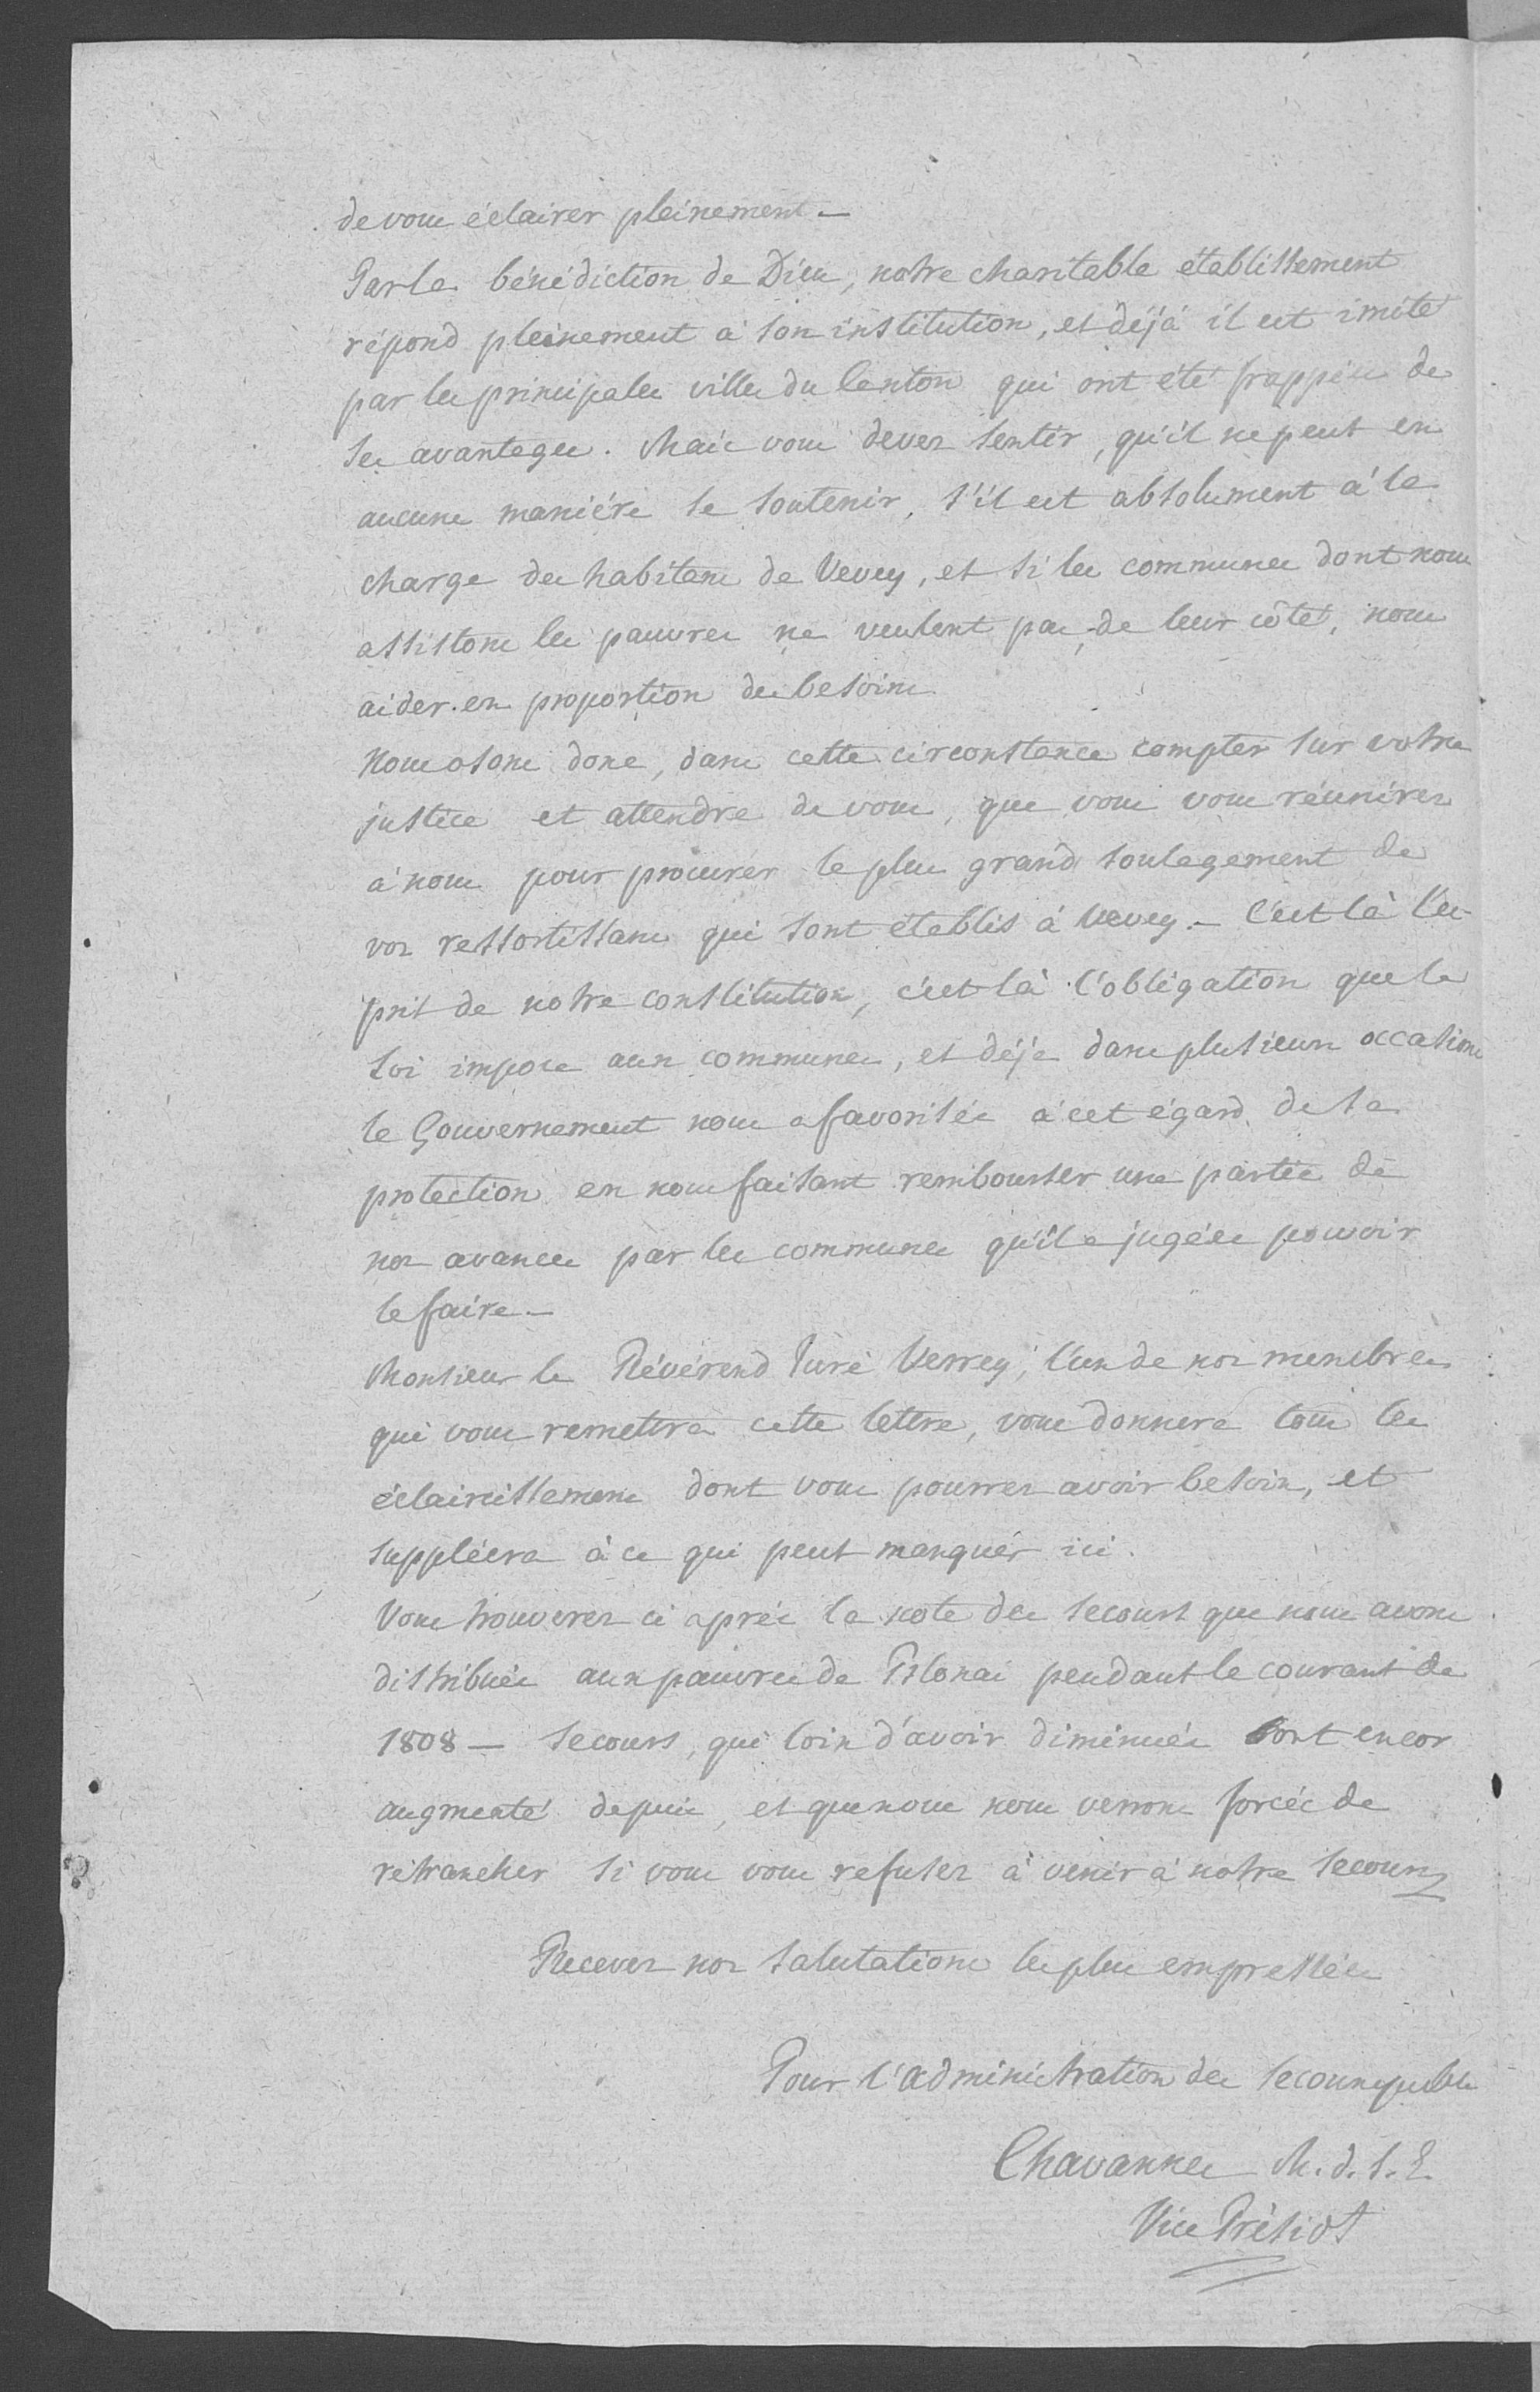 de vous éclairer pleinement —
Par la bénédiction de Dieu, notre charitable établissement
répond pleinement à son institution, et déjà il est imité
par les principales villes du Canton qui ont été frappées de
ses avantages. Mais vous devez sentir, qu'il ne peut en
aucune maniére se soutenir, s'il est absolument à la
charge des habitans de Vevey, et si les communes dont nous
assistons les pauvres ne veulent pas, de leur côté, nous
aider en proportion des besoins
Nous osons donc, dans cette circonstance compter sur votre
justice et attendre de vous, que vous vous réunirez
à nous pour procurer le plus grand soulagement de
vos ressortissans qui sont établis à Vevey — C'est là l'es-
prit de notre constitution, c'est là l'obligation que la
Loi impose aux communes, et déjà dans plusieurs occasions
le Gouvernement nous a favorisés à cet égard de sa
protection en nous faisant rembourser une partie de
nos avances par les communes qu'il a jugées pouvoir
le faire —
Monsieur le Révérend Juré Verrey, l'un de nos membres
qui vous remettra cette lettre, vous donnera tous les
éclaircissemens dont vous pourrez avoir besoin, et
suppléera à ce qui peut manquer ici.
Vous trouverez ci après la note des secours que nous avons
distribués aux pauvres de Blonai pendant le courant de
1808 — secours, qui loin d'avoir diminués sont encor
augmenté depuis, et que nous nous verrons forcés de
retrancher si vous vous refusez à venir à notre secours
Recevez nos salutations les plus empressées
Pour l'administration des secours publics
Chavannes M. d. S. E.
Vice Présidt